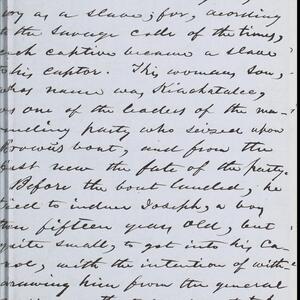 boy as a slave; for, acording
to the savage code of the times,
each captive became a slave
to his captor. This womans son,
whos name was Kiachatalee,
as one of the leaders of the ma
rauding party who seized upon
Brown's boat, and from the
first new the fate of the party.
Before the boat landed, he
tried to induce Joseph, a boy
then fifteen years old, but
quite small, to get into his ca
noe, with the intention of with
drawing him from the general